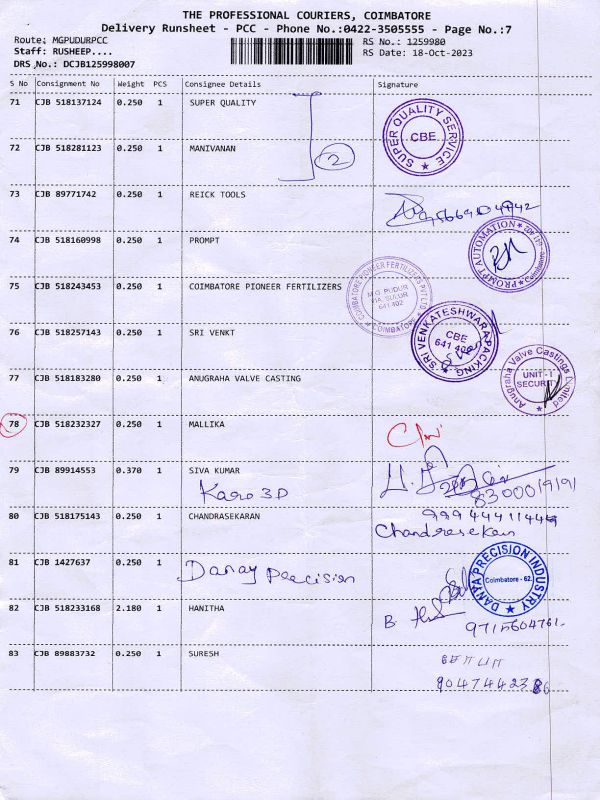 THE PROFESSIONAL COURIERS, COIMBATORE
Delivery Runsheet - PCC - Phone No.:0422-3505555 - Page No.:7
Route: MGPUDURPCC RS No.: 1259980
Staff: RUSHEEP.... RS Date: 18-Oct-2023
DRS No.: DCJB125998007
S No Consignment No Weight PCS Consignee Details Signature
71 CJB 518137124 0.250 1 SUPER QUALITY
SUPER QUALITY SERVICE CBE
72 CJB 518281123 0.250 1 MANIVANAN 2
73 CJB 89771742 0.250 1 REICK TOOLS
74 CJB 518160998 0.250 1 PROMPT
PROMPT AUTOMATION
75 CJB 518243453 0.250 1 COIMBATORE PIONEER FERTILIZERS
COIMBATORE PIONEER FERTILIZERS PVT LTD COIMBATORE
M.G. PUDUR
VIA. SULUR
641 402
76 CJB 518257143 0.250 1 SRI VENKT
SRI VENKATESHWARA PACKING
CBE
641 402
77 CJB 518183280 0.250 1 ANUGRAHA VALVE CASTING
Anugraha Valve Castings Limited
UNIT-1
SECURITY
78 CJB 518232327 0.250 1 MALLIKA
79 CJB 89914553 0.370 1 SIVA KUMAR
Karo 3D 8300019191
80 CJB 518175143 0.250 1 CHANDRASEKARAN
Chandraseken
81 CJB 1427637 0.250 1 Danay Precision
DANYA PRECISION INDUSTRY
Coimbatore - 62.
82 CJB 518233168 2.180 1 HANITHA
9715604761.
83 CJB 89883732 0.250 1 SURESH